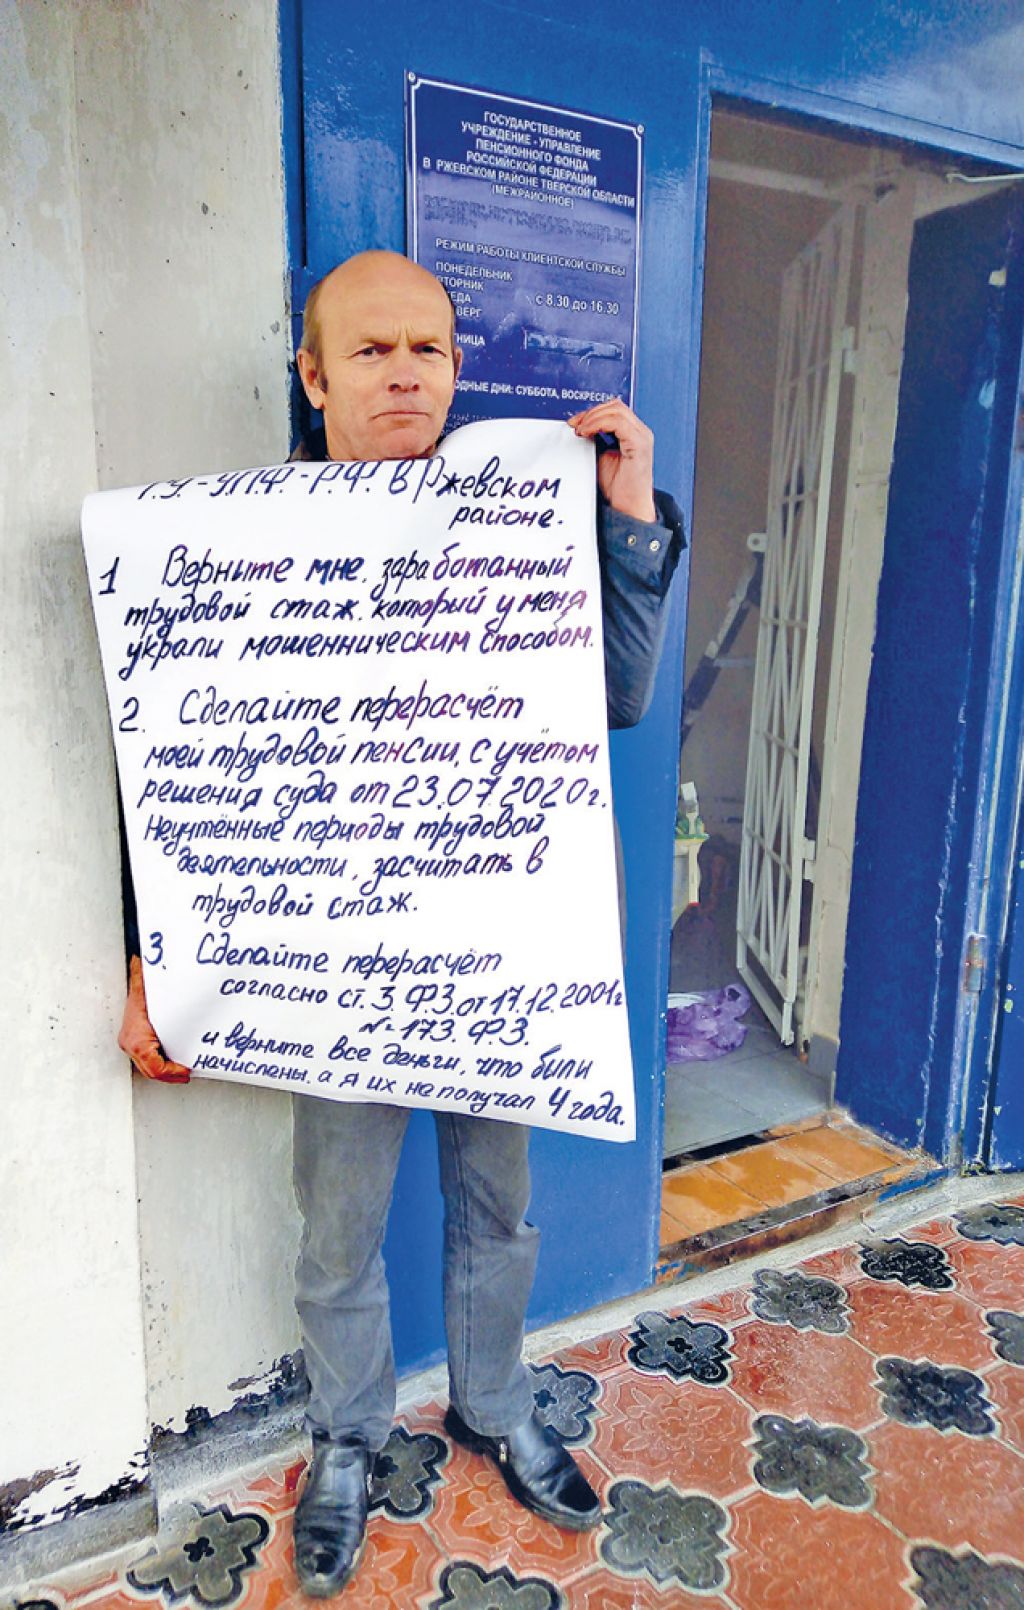 ГОСУДАРСТВЕННОЕ
УЧРЕЖДЕНИЕ - УПРАВЛЕНИЕ
ПЕНСИОННОГО ФОНДА
РОССИЙСКОЙ ФЕДЕРАЦИИ
В РЖЕВСКОМ РАЙОНЕ ТВЕРСКОЙ ОБЛАСТИ
(МЕЖРАЙОННОЕ)
РЕЖИМ РАБОТЫ КЛИЕНТСКОЙ СЛУЖБЫ
ПОНЕДЕЛЬНИК
ВТОРНИК
ЕДА с 8.30 до 16.30
ВЕРГ
ТНИЦА
ОДНЫЕ ДНИ: СУББОТА, ВОСКРЕСЕНЬЕ
Г.У.-У.П.Ф.-Р.Ф. в Ржевском
районе.
1 Верните мне, заработанный
трудовой стаж, который у меня
украли мошенническим способом.
2. Сделайте перерасчёт
моей трудовой пенсии, с учётом
решения суда от 23.07.2020г.
Неучтённые периоды трудовой
деятельности, засчитать в
трудовой стаж.
3. Сделайте перерасчёт
согласно ст. 3. Ф.З. от 17.12.2001г
№ 173. Ф.З.
и верните все деньги, что были
начислены, а я их не получал 4 года.